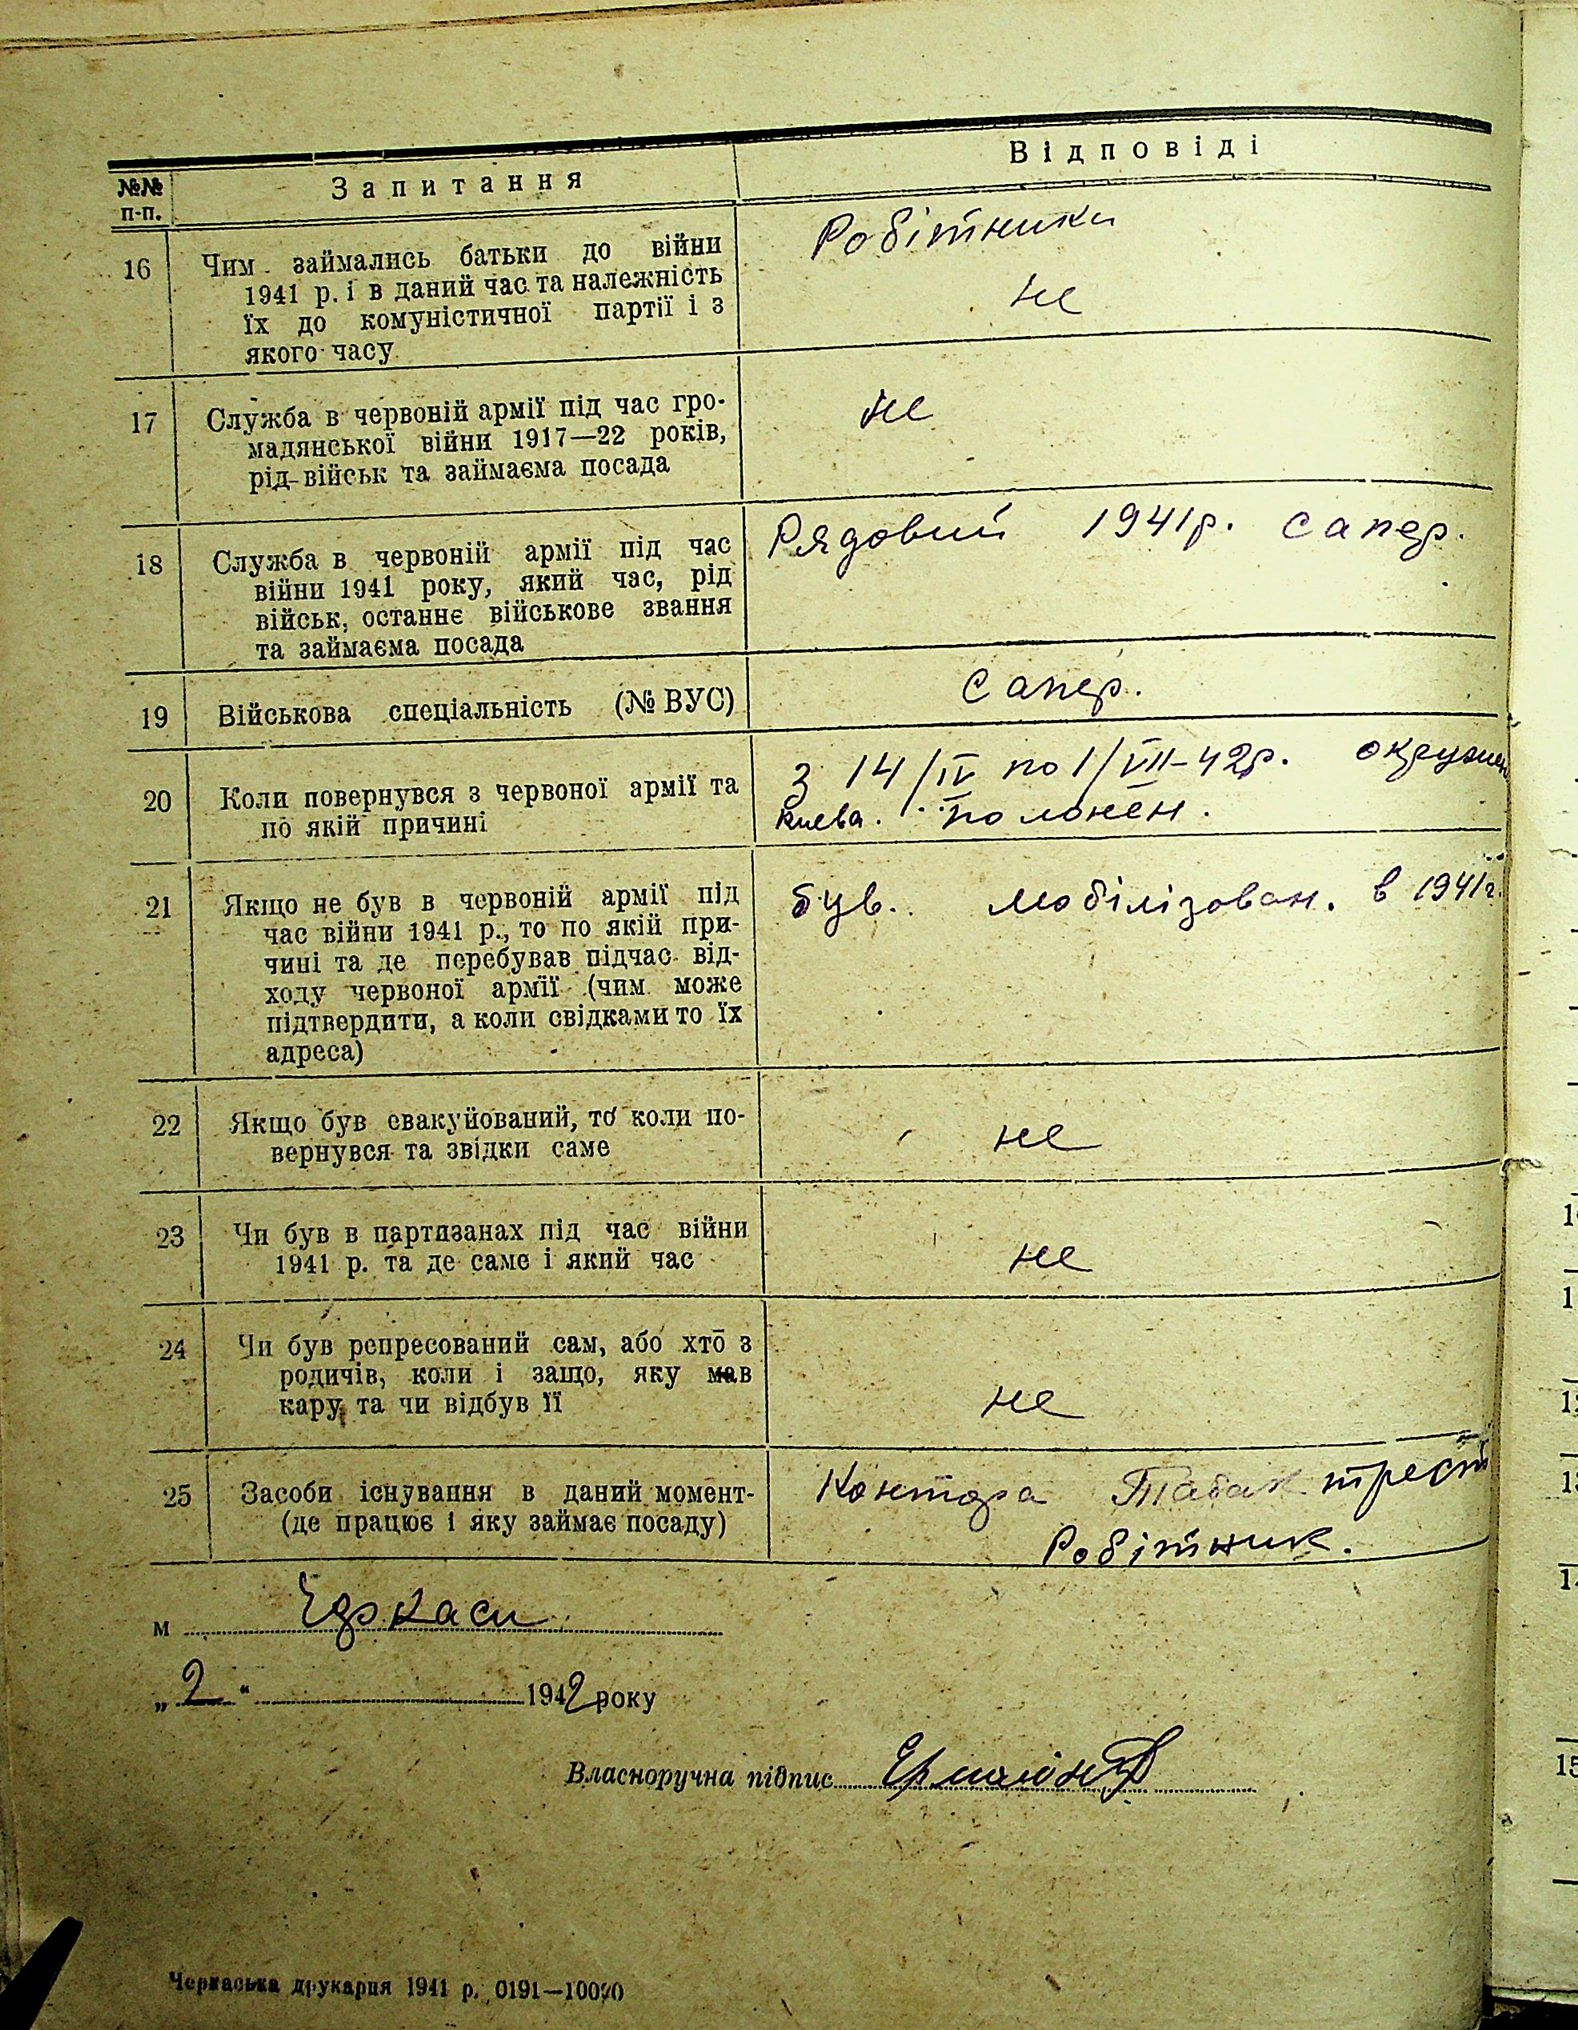 №№ п-п. Запитання Відповіді
16 Чим займались батьки до війни
1941 р. і в даний час та належність
їх до комуністичної партії і з
якого часу
Робітники
не
17 Служба в червоній армії під час гро-
мадянської війни 1917—22 років,
рід військ та займаєма посада
не
18 Служба в червоній армії під час
війни 1941 року, який час, рід
військ, останнє військове звання
та займаєма посада
Рядовий 1941р. сапер.
19 Військова спеціальність (№ ВУС)
сапер.
20 Коли повернувся з червоної армії та
по якій причині
з 14/IV по 1/VII-42р.
Києва. полонен.
21 Якщо не був в червоній армії під
час війни 1941 р., то по якій при-
чині та де перебував підчас від-
ходу червоної армії (чим може
підтвердити, а коли свідками то їх
адреса)
був. мобілізован. в 1941г.
22 Якщо був евакуйований, то коли по-
вернувся та звідки саме
не
23 Чи був в партизанах під час війни
1941 р. та де саме і який час
не
24 Чи був репресований сам, або хто з
родичів, коли і защо, яку мав
кару, та чи відбув її
не
25 Засоби існування в даний момент-
(де працює і яку займає посаду)
Контора Табак трест
Робітник.
м Черкаси
„2“ 1942 року
Власноручна підпис
Черкаська друкарня 1941 р. 0191—10000
1
1
1
15